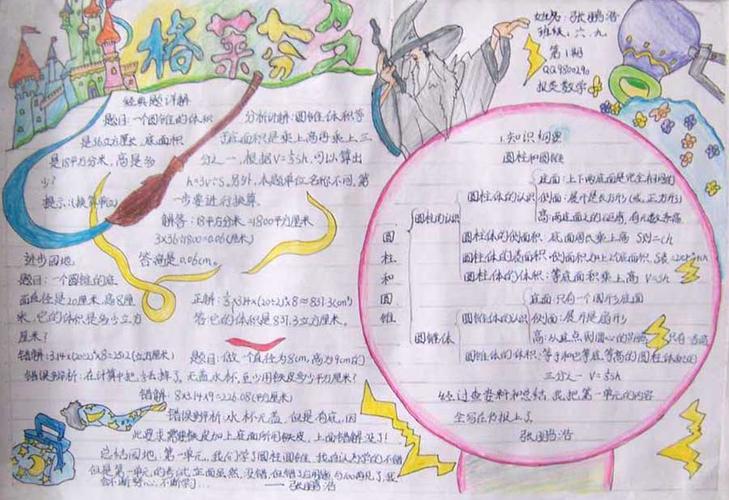 格莱芬多
姓名:张鹏浩
班级:六、九
第1期
报类数学
经典题详解
题目:一个圆锥的体积
是36立方厘米,底面积
是18平方分米,高是多
少?
提示:(换算单位)
分析讲解:圆锥体积等
于底面积乘上高再乘上三
分之一,根据V=⅓sh,可以算出
h=3V÷S,另外,本题单位名称不同,第
一步要进行换算。
解答:18平方分米=1800平方厘米
3×36÷1800=0.06(厘米)
答:高是0.06cm。
进步园地
题目:一个圆锥的底
面直径是20厘米,高8厘
米,它的体积是多少立方
厘米?
正解:⅓×3.14×(20÷2)²×8≈837.3(cm³)
答:它的体积是837.3立方厘米。
错解:3.14×(20÷2)²×8=2512(立方厘米)
错误评析:在计算中把⅓去掉了。
题目:做一个直径为8cm,高为9cm的
无盖水杯,至少用铁皮多少平方厘米?
错解:8×3.14×9=226.08(平方厘米)
错误评析:水杯无盖,但是有底,因
此要求需要铁皮加上底面所用铁皮,上面错解
总结园地:第一单元,我们学了圆柱圆锥,我自认为学的不错
但是第一单元的考试
——张鹏浩
知识构架
圆柱和圆锥
圆柱和圆锥
圆柱的认识
圆柱体的认识
底面:上下两底面是完全相同的
侧面:展开是长方形(或正方形)
高:两底面之间的距离,有无数条高
圆柱体的侧面积:底面周长乘上高 S侧=ch
圆柱体的表面积:侧面积加上2个底面积
圆柱体的体积:等底面积乘上高 V=Sh
圆锥体
圆锥体的认识
底面:只有一个圆形底面
侧面:展开是扇形
高:从顶点到圆心的距离,只有一条高
圆锥体的体积:等于和它等底、等高的圆柱体积的
三分之一 V=⅓sh
经过查资料和总结,我把第一单元的内容
全写在价报上了
张鹏浩